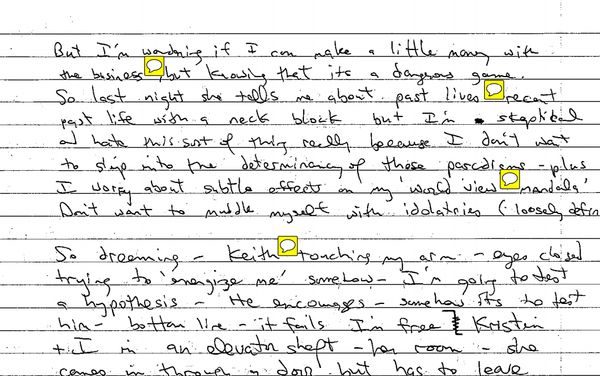 But I'm wondering if I can make a little money with
the business but knowing that its a dangerous game.
So last night she tells me about past lives recent
past life with a neck block but I'm skeptical
and hate this sort of thing really because I don't want
to slip into the determinancy of those paradigms - plus
I worry about subtle affects on my 'world view mandala'
Don't want to muddle myself with idolatries (loosely defin
So dreaming - Keith touching my arm - eyes closed
trying to 'energize me' somehow - I'm going to test
a hypothesis - He encourages - somehow its to test
him - bottom line - it fails I'm free Kristin
+ I in an elevator shaft - her room - she
comes in through a door but has to leave